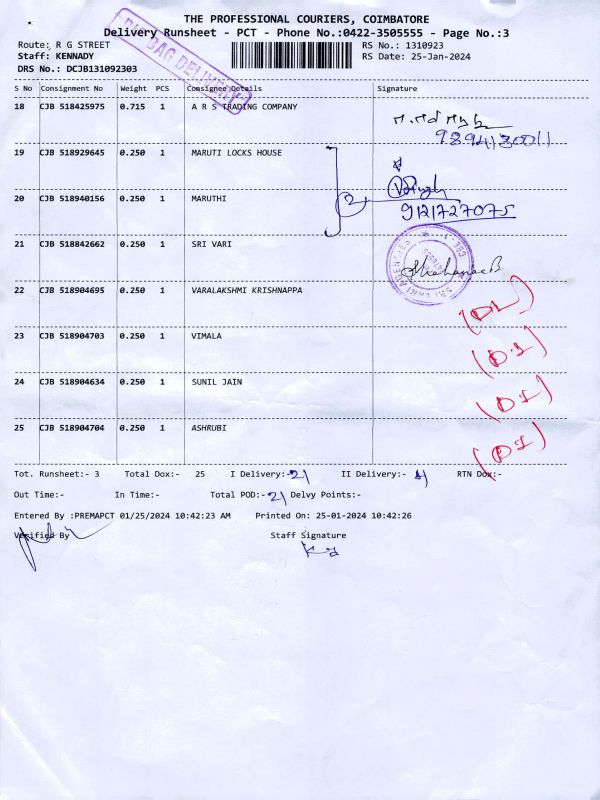 THE PROFESSIONAL COURIERS, COIMBATORE
Delivery Runsheet - PCT - Phone No.:0422-3505555 - Page No.:3
Route: R G STREET
RS No.: 1310923
Staff: KENNADY
RS Date: 25-Jan-2024
DRS No.: DCJB131092303
DELIVERY
S No Consignment No Weight PCS Consignee Details Signature
18 CJB 518425975 0.715 1 A R S TRADING COMPANY
19 CJB 518929645 0.250 1 MARUTI LOCKS HOUSE
20 CJB 518940156 0.250 1 MARUTHI
2
9121727075
21 CJB 518842662 0.250 1 SRI VARI
22 CJB 518904695 0.250 1 VARALAKSHMI KRISHNAPPA
23 CJB 518904703 0.250 1 VIMALA
24 CJB 518904634 0.250 1 SUNIL JAIN
25 CJB 518904704 0.250 1 ASHRUBI
Tot. Runsheet:- 3 Total Dox:- 25 I Delivery:- 21 II Delivery:- RTN Dox:-
Out Time:- In Time:- Total POD:- 21 Delvy Points:-
Entered By :PREMAPCT 01/25/2024 10:42:23 AM Printed On: 25-01-2024 10:42:26
Verified By Staff Signature